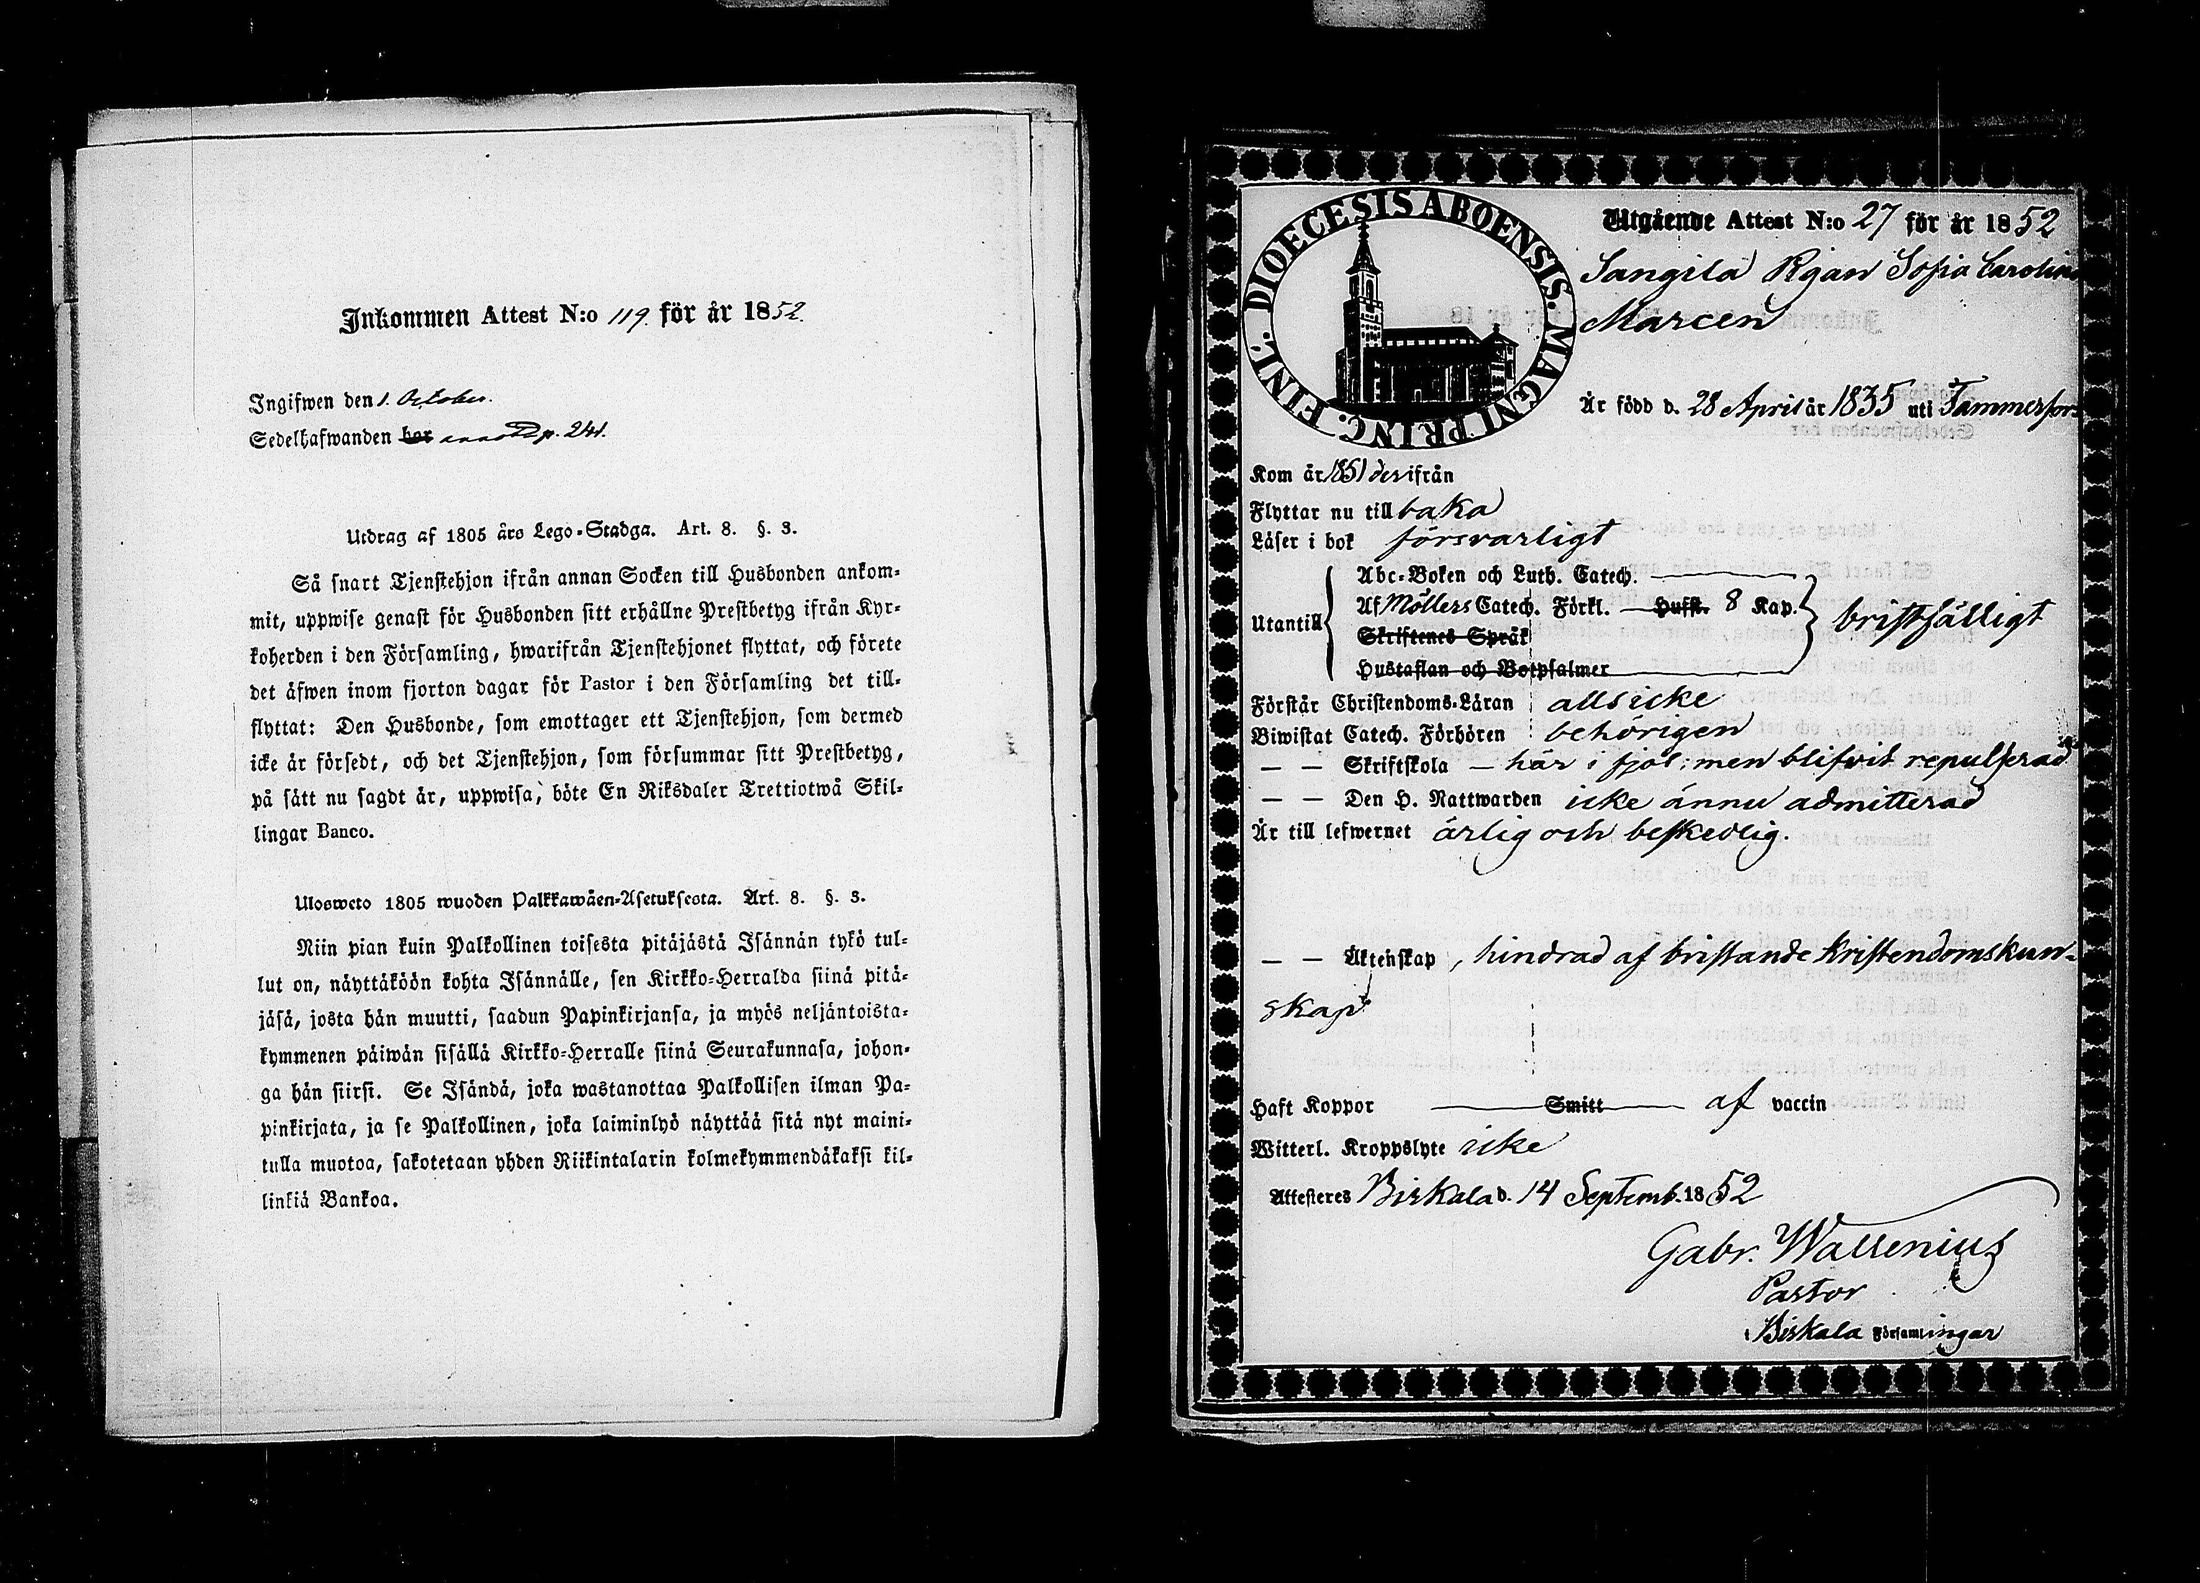 Inkommen Attest N:o 119. för år 1852.
Ingifwen den 1. October.
Sedelhafwanden bor annoterad p. 241.
Utdrag af 1805 års Lego-Stadga. Art. 8. §. 3.
Så snart Tjenstehjon ifrån annan Socken till Husbonden ankom-
mit, uppwise genast för Husbonden sitt erhållne Prestbetyg ifrån Kyr-
koherden i den Församling, hwarifrån Tjenstehjonet flyttat, och förete
det äfwen inom fjorton dagar för Pastor i den Församling det till-
flyttat: Den Husbonde, som emottager ett Tjenstehjon, som dermed
icke är försedt, och det Tjenstehjon, som försummar sitt Prestbetyg,
på sätt nu sagdt är, uppwisa, böte En Riksdaler Trettiotwå Skil-
lingar Banco.
Ulosweto 1805 wuoden Palkkawäen-Asetuksesta. Art. 8. §. 3.
Niin pian kuin Palkollinen toisesta pitäjästä Isännän tykö tul-
lut on, näyttäköön kohta Isännälle, sen Kirkko-Herralda siinä pitä-
jäsä, josta hän muutti, saadun Papinkirjansa, ja myös neljäntoista-
kymmenen päiwän sisällä Kirkko-Herralle siinä Seurakunnasa, johon-
ga hän siirsi. Se Isändä, joka wastanottaa Palkollisen ilman Pa-
pinkirjata, ja se Palkollinen, joka laiminlyö näyttää sitä nyt maini-
tulla muotoa, sakotetaan yhden Riikintalarin kolmekymmendäkaksi kil-
linkiä Bankoa.
DIOECESIS ABOENSIS. MAGNI PRINC. FINL.
Utgående Attest N:o 27 för år 1852
Sangila Pigan Sofia Carolina
Marcen
Är född d. 28 April år 1835 uti Tammerfors
Kom år 1851 derifrån
Flyttar nu tillbaka
Läser i bok försvarligt
Utantill
Abc-Boken och Luth. Catech.
Af Möllers Catech. Förkl. Hufst. 8 Kap.
Skriftenes Språk
Hustaflan och Botpsalmer
bristfälligt
Förstår Christendoms-Läran alls icke
Biwistat Catech. Förhören behörigen
— — Skriftskola här i fjol; men blifvit repulserad
— — Den H. Nattwarden icke ännu admitterad
Är till lefwernet ärlig och beskedlig.
— — Äktenskap, hindrad af bristande kristendomskun-
skap
Haft Koppor Smitt af vaccin
Witterl. Kroppslyte icke
Attesteres Birkala d. 14 Septemb. 1852
Gabr. Wallenius
Pastor
i Birkala Församlingar